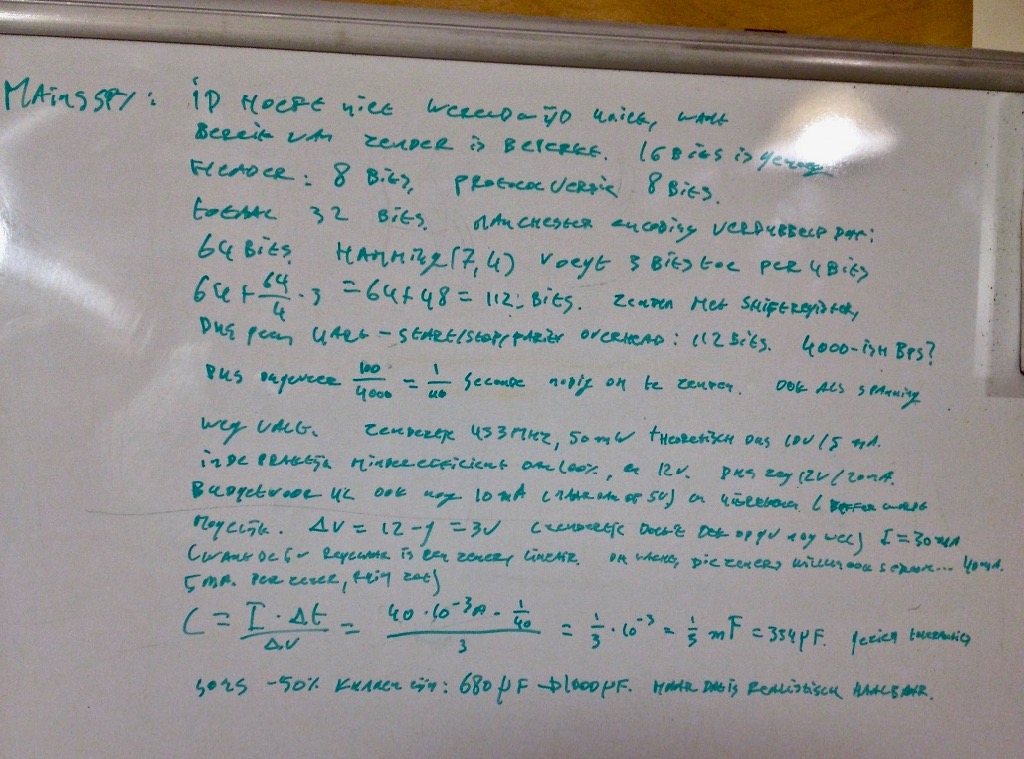 MAINSSPY: ID HOEFT NIET WERELDWIJD UNIEK, WANT
BEREIK VAN ZENDER IS BEPERKT. 16 BITS IS genoeg
HEADER: 8 BITS, PROTOCOL VERSIE 8 BITS.
TOTAAL 32 BITS. MANCHESTER encoding VERDUBBELT DAT:
64 BITS. HAMMING(7,4) VOEGT 3 BITS TOE PER 4 BITS
64 + 64/4 · 3 = 64 + 48 = 112 BITS. ZENDEN MET SHIFTREGISTER,
DUS geen UART - START/STOP/PARITY OVERHEAD: 112 BITS. 4000-ISH BPS?
DUS ongeveer 100/4000 = 1/40 seconde nodig om te zenden. OOK ALS SPANNING
weg VALT. ZENDERTJE 433MHZ, 50mW THEORETISCH DUS 10V/5 mA.
IN DE PRAKTIJK MINDER EFFICIENT DAN 100%, en 12V. DUS zeg 12V/20mA.
BUDGET VOOR UC OOK nog 10mA (MAAR DAN OP 5V) en
MOEILIJK. ΔV = 12-9 = 3V (ZENDERTJE DOET OOK OP 9V nog wel) I = 30mA
(WANT DE 5V REGELAAR IS EEN ZENER, LINEAIR. OH WACHT, DIE ZENERS WILLEN OOK STROOM... 40mA.
5mA. PER ZENER,
C = I · Δt / ΔV = 40 · 10⁻³A · 1/40 / 3 = 1/3 · 10⁻³ = 1/3 mF = 334µF. gezien toleranties
SOMS -50% KUNNEN ZIJN: 680µF → 1000µF. MAAR DAT IS REALISTISCH HAALBAAR.